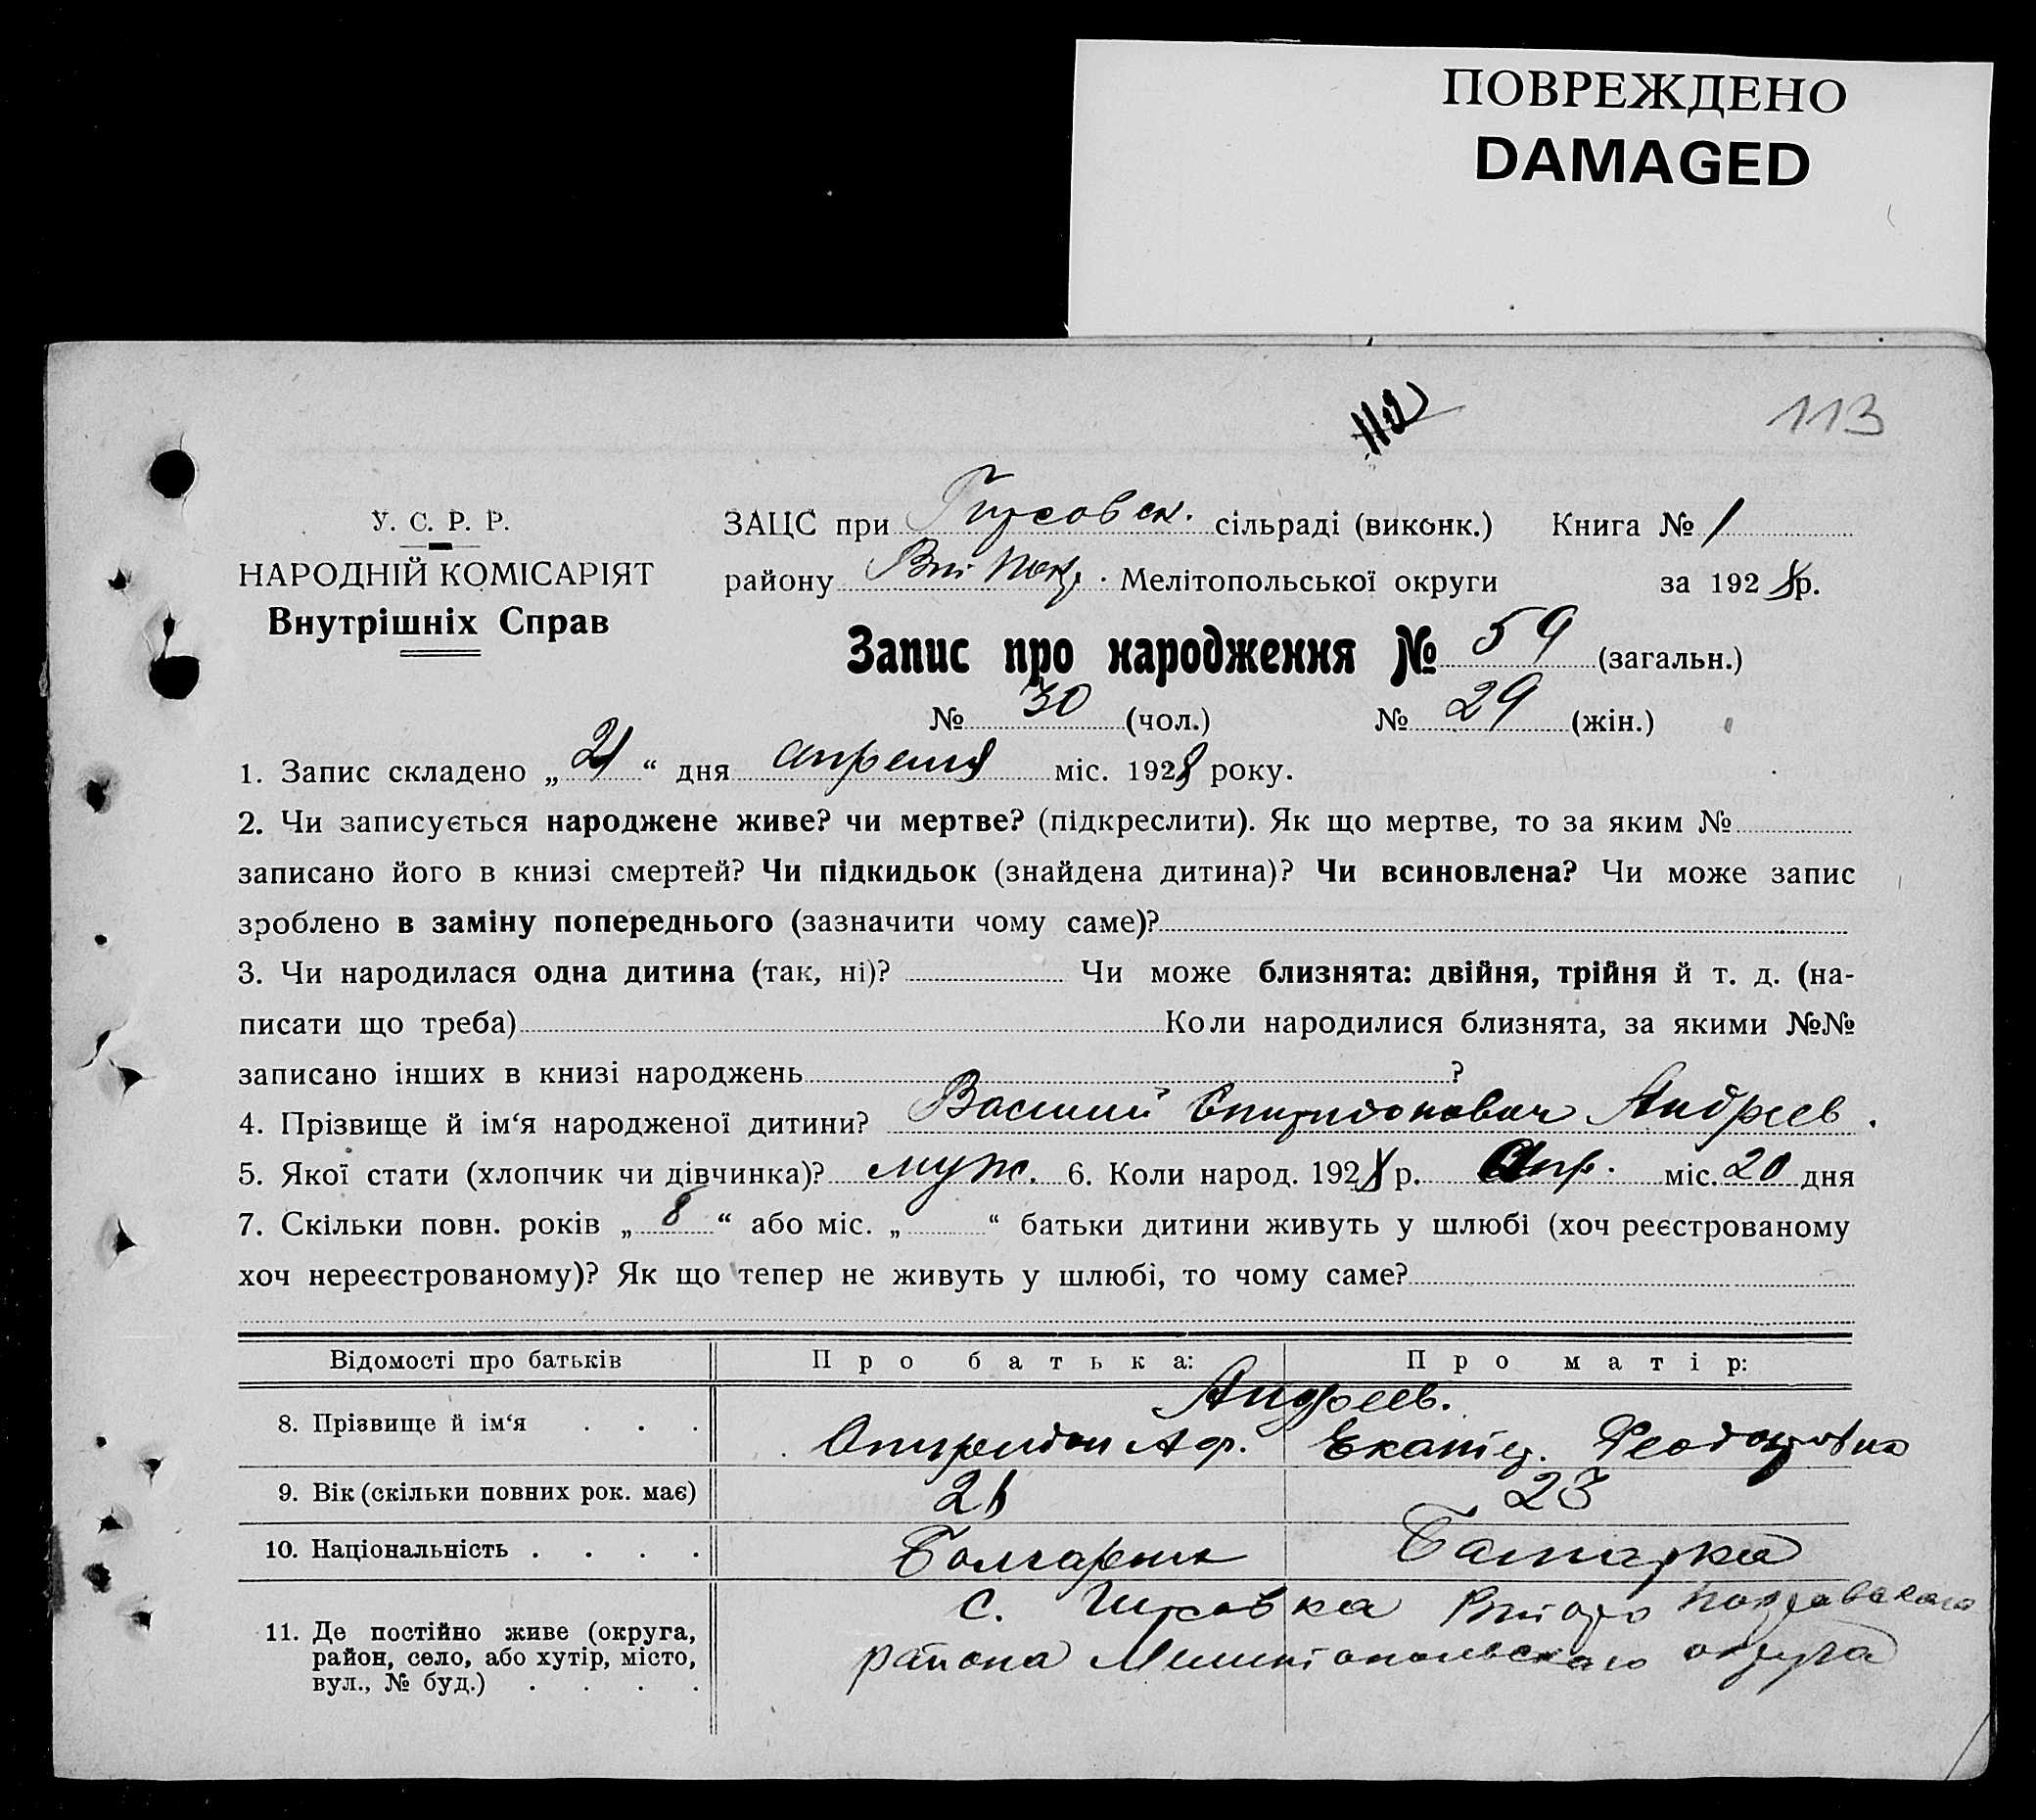 ПОВРЕЖДЕНО
DAMAGED
112
113
У. С. Р. Р.
НАРОДНІЙ КОМІСАРІЯТ
Внутрішніх Справ
ЗАЦС при Гирсовск. сільраді (виконк.) Книга № 1
району Мелітопольської округи за 1928 р.
Запис про народження № 59 (загальн.)
№ 30 (чол.) № 29 (жін.)
1. Запис складено „ 21 “ дня апреля міс. 1928 року.
2. Чи записується народжене живе? чи мертве? (підкреслити). Як що мертве, то за яким №
записано його в книзі смертей? Чи підкидьок (знайдена дитина)? Чи всиновлена? Чи може запис
зроблено в заміну попереднього (зазначити чому саме)?
3. Чи народилася одна дитина (так, ні)? Чи може близнята: двійня, трійня й т. д. (на-
писати що треба) Коли народилися близнята, за якими №№
записано інших в книзі народжень ?
4. Прізвище й ім‘я народженої дитини? Василий Спиридонович Андреев.
5. Якої стати (хлопчик чи дівчинка)? муж. 6. Коли народ. 1928 р. Апр. міс. 20 дня
7. Скільки повн. років „ 8 “ або міс. „ “ батьки дитини живуть у шлюбі (хоч реєстрованому
хоч нереєстрованому)? Як що тепер не живуть у шлюбі, то чому саме?
Відомості про батьків Про батька: Про матір:
Андреев.
8. Прізвище й ім‘я . . . Спиридон Аф. Екатер. Феодоровна
9. Вік (скільки повних рок. має) 26 23
10. Національність . . . . Болгарин Болгарка
с. Гирсовка
11. Де постійно живе (округа,
район, село, або хутір, місто,
вул., № буд.) . . . .
района Мелитопольского округа